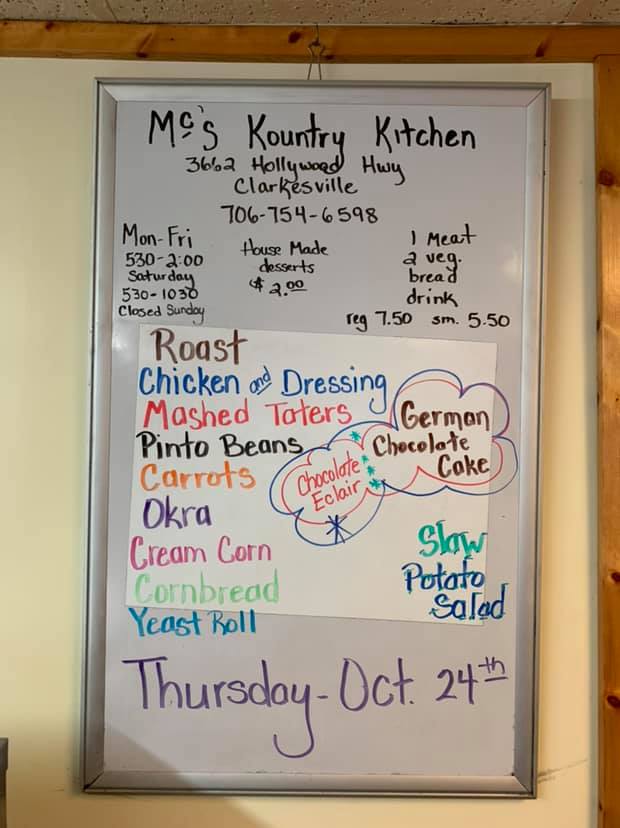 Mc's Kountry Kitchen
3662 Hollywood Hwy
Clarkesville
706-754-6598
Mon-Fri
530-2:00
Saturday
530-1030
Closed Sunday
House Made
desserts
$2.00
1 Meat
2 veg.
bread
drink
reg 7.50 sm. 5.50
Roast
Chicken and Dressing
Mashed Taters
Pinto Beans
Carrots
Okra
Cream Corn
Cornbread
Yeast Roll
German
Chocolate
Cake
Chocolate
Eclair
Slaw
Potato
Salad
Thursday-Oct. 24th